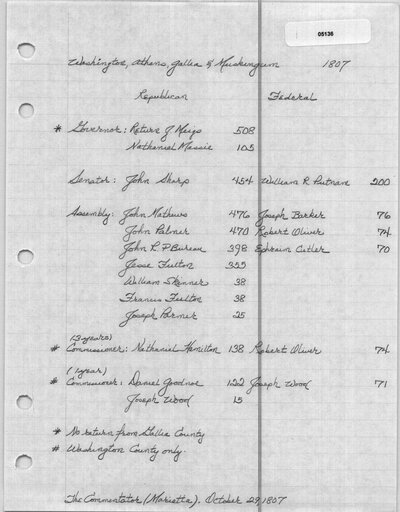 05136
Washington, Athens, Gallia & Muskingum 1807
Republican Federal
* Governor: Return J Meigs 508
Nathaniel Massie 105
Senator: John Sharp 454 William R Putnam 200
Assembly: John Mathews 476 Joseph Barker 76
John Palmer 470 Robert Oliver 74
John R. P Bureau 398 Ephraim Cutler 70
Jesse Fulton 355
William Skinner 38
Francis Fulton 38
Joseph Palmer 25
(3 years)
* Commissioner: Nathaniel Hamilton 138 Robert Oliver 74
(1 year)
* Commissioner: Daniel Goodnoe 122 Joseph Wood 71
Joseph Wood 15
* No return from Gallia County
* Washington County only.
The Commentator (Marietta). October 29, 1807